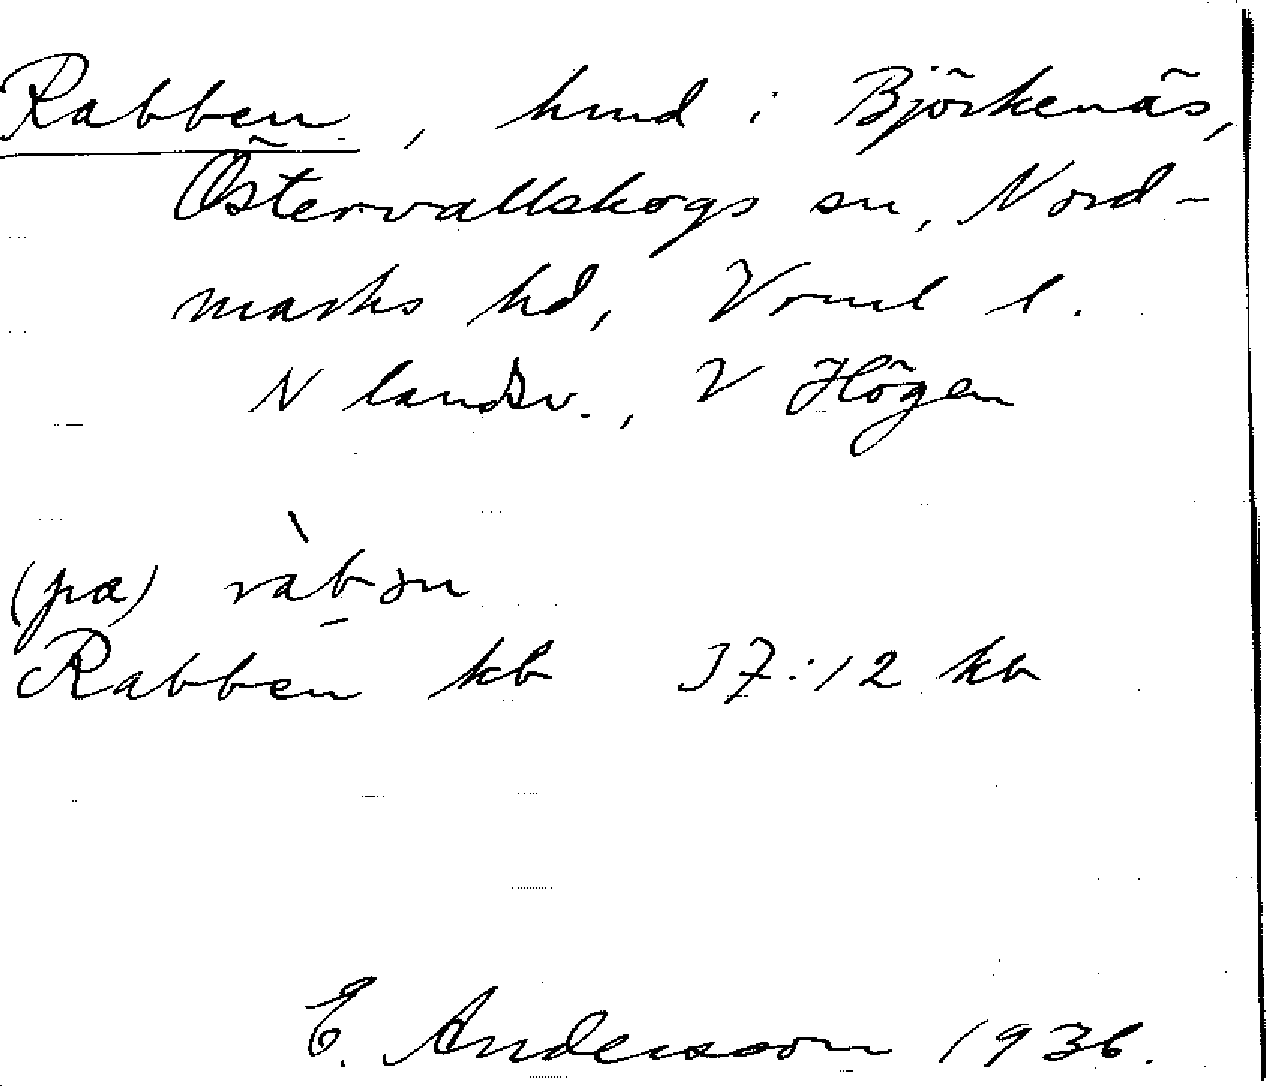 Rabben, hmd i Björkenäs,
Östervallskogs sn, Nord-
marks hd, Vrml l.
N landsv., V Högen
(pa) ràb̠ən
Rabben kb 37:12 kb
E. Andersson 1936.